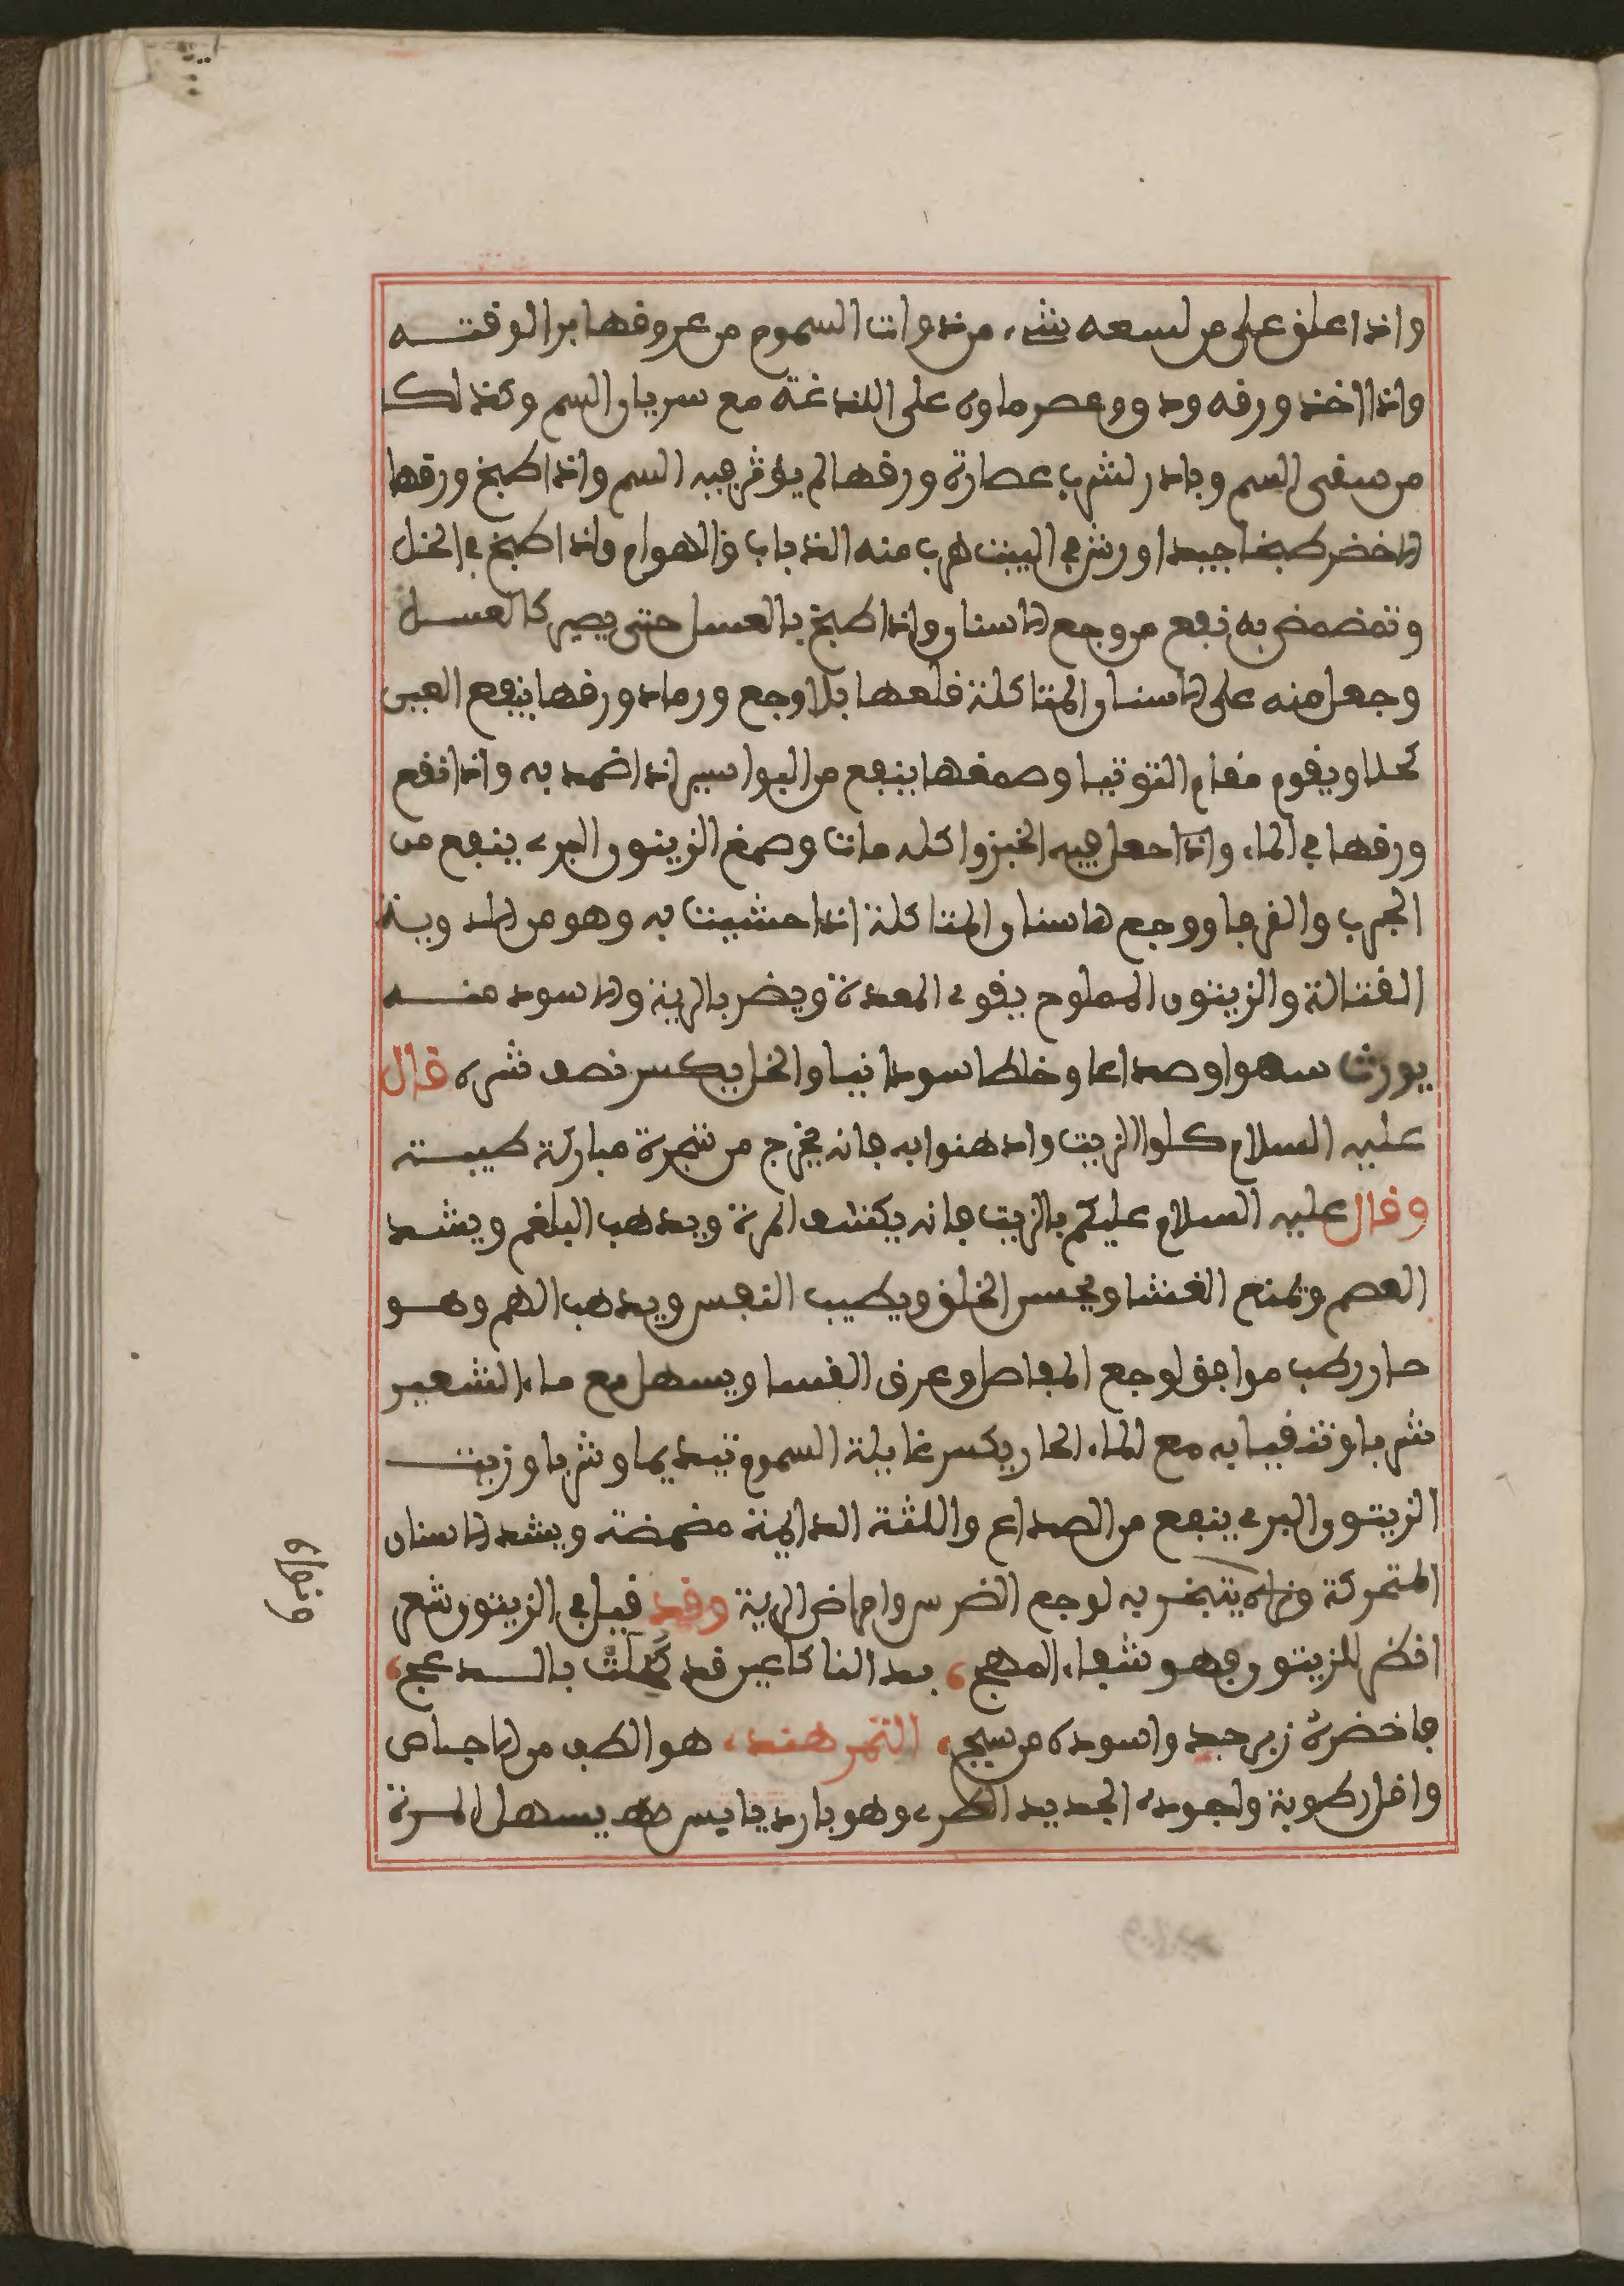 واذا علق على من لسعه شيء من ذوات السموم من عروقها برا لوقته
واذا اخذ ورقه ودق وعصر ماوه على اللذغة مع سريان السم وكذلك
من سقى السم وبادر لشرب عصارة ورقها لم يؤثر فيه السم واذا طبخ ورقها
الاخضر طبخا جيدا ورش في البيت هرب منه الذباب والاهوام واذا طبخ في الخل
وتمضمض به نفع من وجع الاسنان واذا طبخ بالعسل حتى يصير كالعسل
وجعل منه على الاسنان المتاكلة قلعها بلا وجع ورماد ورقها ينفع العين
كحلا ويقوم مقام التوتيا وصمغها ينفع من البواسير اذا ضمد به واذا نقع
ورقها في الماء واذا جعل فيه الخبز واكله مات وصمغ الزيتون البري ينفع من
الجرب والقرحا ووجع الاسنان المتاكلة اذا حشيت به وهو من الادوية
القتالة والزيتون المملوح يقوي المعدة ويضر بالرية والاسود منه
يورث سهرا وصداعا وخلطا سودانيا والخل يكسر نصف شره قال
عليه السلام كلوا الزيت وادهنوا به فانه يخرج من شجرة مباركة طيبة
وقال عليه السلام عليكم بالزيت فانه يكشف المرة ويذهب البلغم ويشد
العصب ويمنع الغشا ويحسن الخلق ويطيب النفس ويذهب الهم وهو
حار رطب موافق لوجع المفاصل وعرق النسا ويسهل مع ماء الشعير
شربا وتقيابه مع الماء الحار يكسر غايلة السموم تبديما وشربا وزيت
الزيتون البري ينفع من الصداع واللثة الدائمة مضمضة ويشد الاسنان
المتحركة يتبخر به لوجع الضرس وامراض الرية وقد قيل في الزيتون شعر
انظر للزيتون فهو شفاء المهج ، بدا لنا كاعين قد كحلت بالسدعج ،
فاخضره زبرجد واسوده من سبج ، التمر هند ، هو الطف من الاجاص
واقل رطوبة واجوده الجديد الطري وهو بارد يابس يسهل المرة
ونهاه